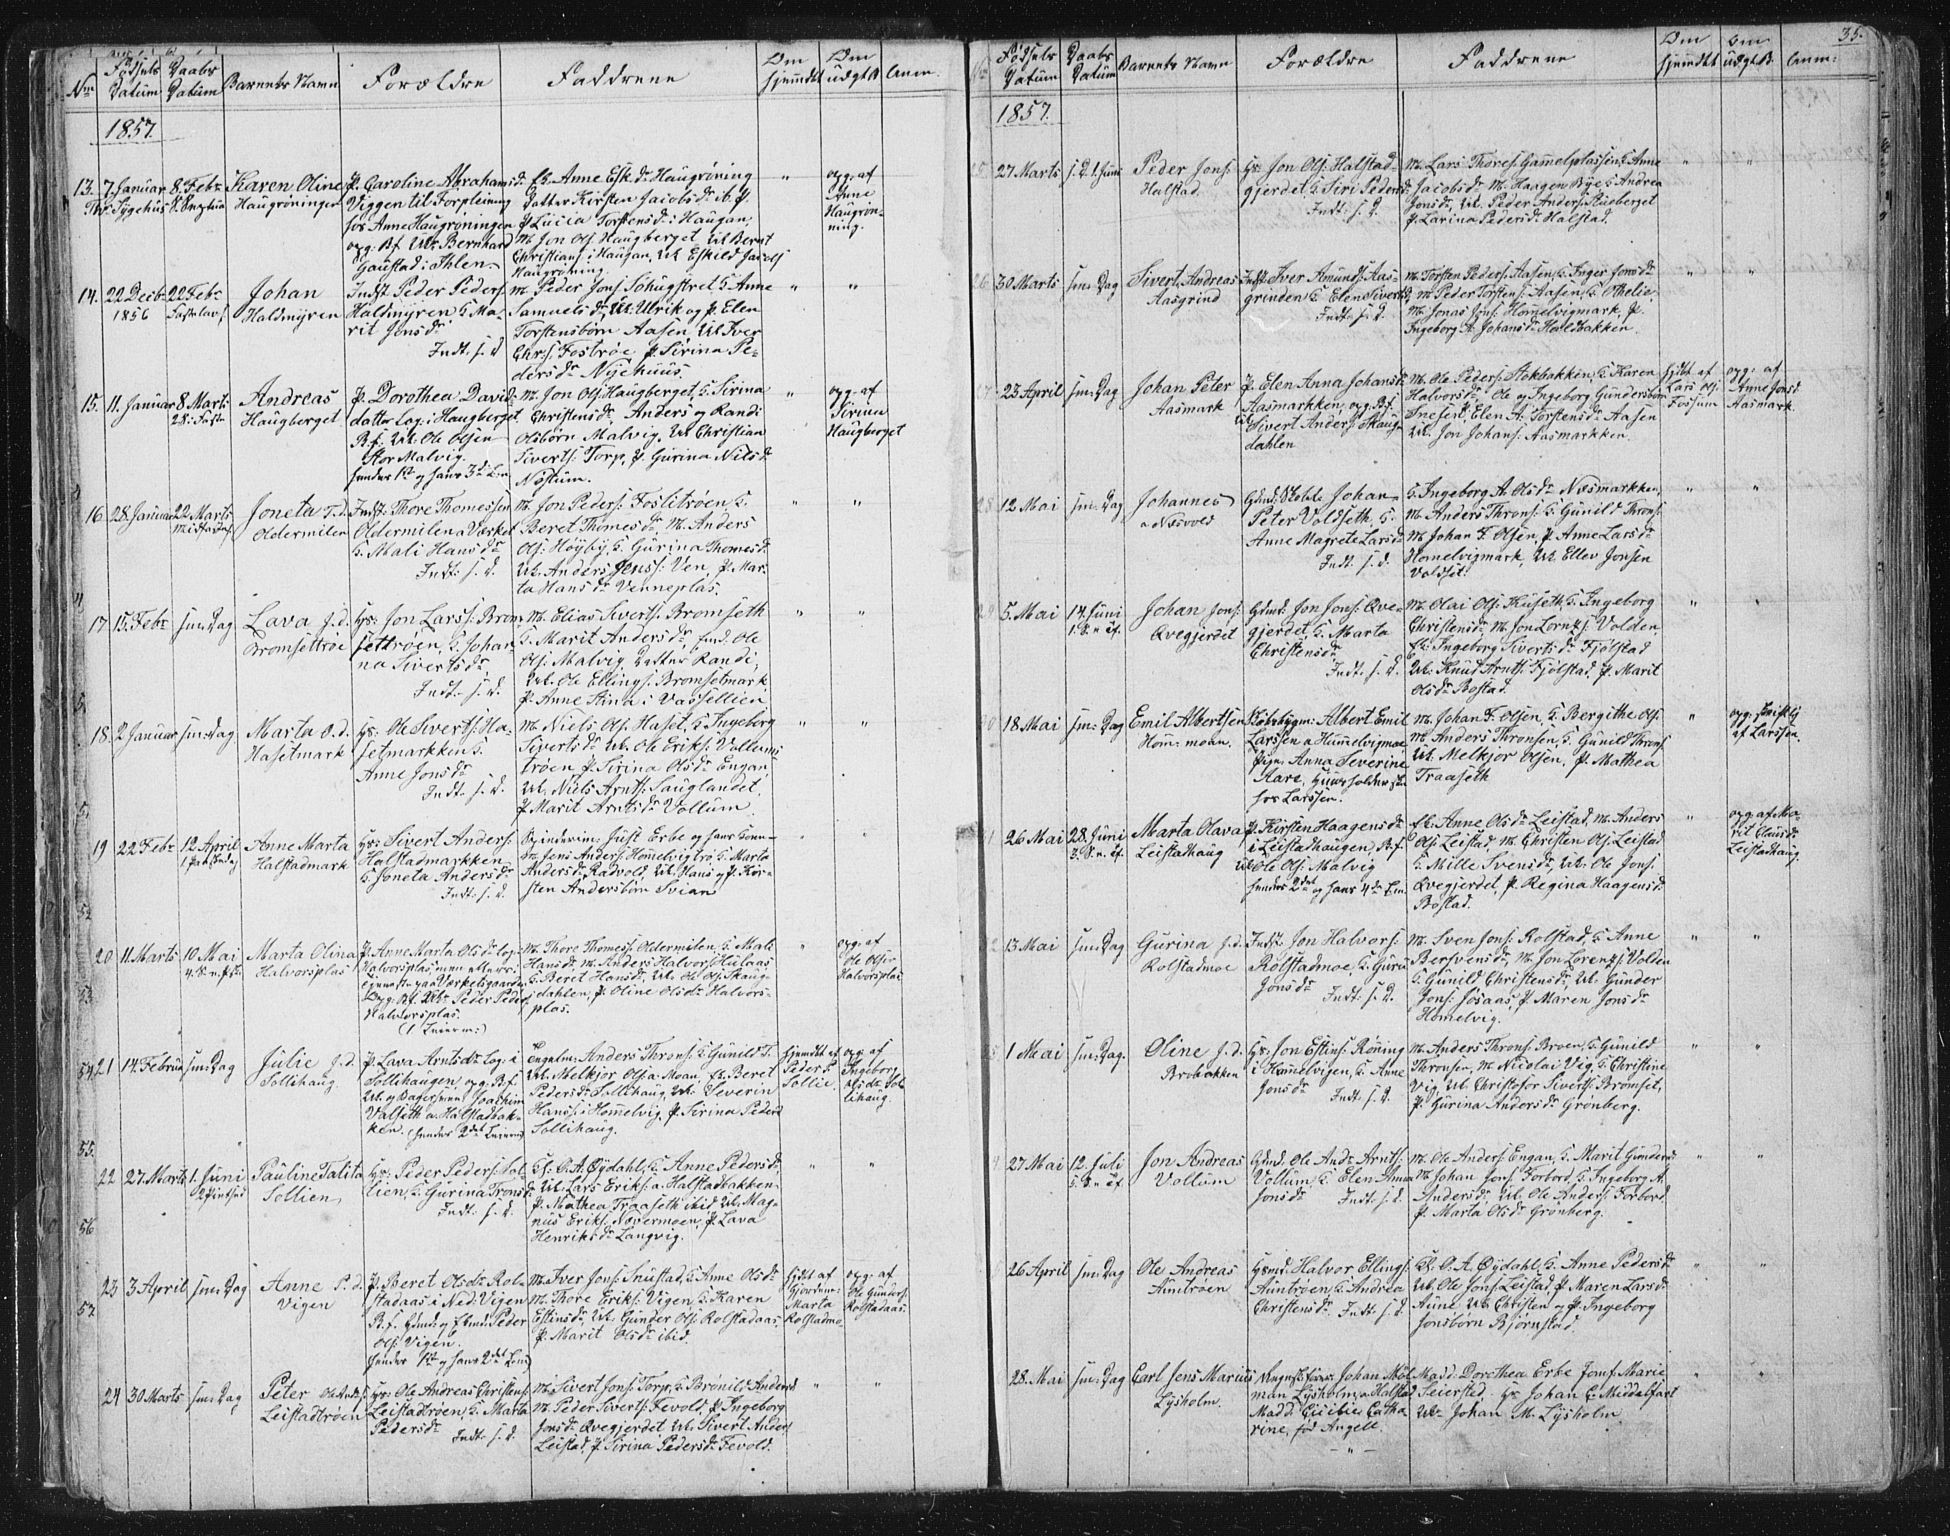 35.
Nm Fødsels Datum Daabs Datum Barnets Navn Forældre Faddrene Om hjemdøbt Om udgt B. Anm.
1857.
13. 7. Januar 8. Febr. Karen Oline
Haugrøningen
P. Caroline Abrahamsdr
Viggen til Forpleining
hos Anne Haugrøningen
opg. Bf. Uk. Bernhard
Gaustad i Ihlen
E. Anne Esk. dr. Haugrøning
Datter Kirsten Jacobsdr ib. P.
P. Lucia Torstensdr i Haugan,
M. Jon Ols. Haugberget, Uk. Bernt
Christians. i Haugan, Uk. Eskild Jacobs.
Haugrøning
opg. af
Anne
Haugrøn-
ning.
14. 22 Decbr 22 Febr
1856 Fastelav s.
Johan
Haldmyren
Indst Peder Peders.
Haldmyren G. Ma-
rit Jonsdr
Indt. s. d.
M. Peder Jons. Sohugstret G. Anne
Samuelsdr, Uk. Ulrik og P. Elen
Torstensbørn Aasen, Uk. Iver
Chrs. Fostrøe P. Sirina Pe-
dersdr Nyehuus.
15. 11. Januar 8. Marts
Andreas
Haugberget
P. Dorothea Davids-
datter Log. i Haugberget
B.f. Uk. Ole Olsen
Stor Malvig.
hendes 1st og hans 3die Leier
M. Jon Ols. Haugberget, G. Sirina
Christensdr, Anders og Randi
Olsbørn Malvig, Uk. Christian
Siverts. Torp, P. Gurina Nilsdr
Nøstum.
opg. af
Sirina
Haugberget
16. 28. Januar 22. Marts
Midfaste
Joneta T.d.
Oldermilen
Indst. Thore Thomessen
Oldermilen a Værket
G. Mali Hansdr
Indt. s. d.
M. Jon Peders. Foslitrøen G.
Beret Thomesdr, M. Anders
Ols. Høyby, G. Gurina Thomesdr.
Uk. Anders Jenss. Ven, P. Mar-
ta Hansdr Venneplas.
17 15. Febr sm: Dag Lava J.d.
Bromsettrøe
Hs: Jon Larss. Brom
settrøen, G. Johan
na Sivertsdr
Indt. s. d.
M. Elias Siverts. Bromseth
G. Marit Andersdr, Ind. Ole
Ols. Malvig, Datter Randi,
Uk. Ole Ellings. Bromsetmark
P. Anne Stina i Vassellien
18. 2 Januar sm: Dag Marta O.d.
Hasetmark
Hs: Ole Siverts. Ha-
setmarkken G.
Anne Jonsdr
Indt. s. d.
M. Niels Ols. Haset, G. Ingeborg
Sivertsdr, Uk. Ole Eriks. Vollums
trøen, P. Sirina Olsdr Engan
Uk. Niels Arnts. Sauglandet,
P. Marit Arntsdr Vollum
19 22 Febr 12 April Anne Marta
Halstadmark
Hs: Sivert Anders.
Halstadmarkken
G. Joneta Andersdr
Indt. s. d.
M. Jens Anders. Homelvigtrø, G. Marta
Andersdr Radvold, Uk. Hans og P. Kir-
sten Andersbørn Svian
20 11. Marts 10 Mai
4. S. n. Pske
Marta Olina
Halvorsplas
P. Anne Marta Olsdr log.
Halvorsplas,
Opg. Bf. Uk. Peder Peders
Halvorsplas.
(1 Leierm:)
M. Thore Thomess. Oldermilen, G. Mali
Hansdr, M. Anders Halvors. Hulaas
G. Beret Hansdr, Uk. Ole Ols. Skaug-
dahlen, P. Oline Olsdr Halvors-
plas.
opg. af
Ole Olsen
Halvorsplas
21 14. Februar sm: Dag Julie J.d.
Sollihaug.
P. Lava Arntsdr Log. i
Sollihaugen, opg. B.f.
Uk. og Bagersvend Joachim
Valseth a. Halstadbak-
ken. (hendes 2det Leierm)
Anders Throns. G. Gunild T.
Uk. Melkjor Ols. a Moan, E. Beret
Pedersdr Sollihaug, Uk. Severin
Hanss. i Homelvig, P. Sirina Peders
Sollihaug.
hjemdøbt af
Peder P.
Sollie.
opg. af
Ingeborg
Olsdr Sol
lihaug.
22 27. Marts 1. Juni
2 Pintsed.
Pauline Talita
Sollien
Hs: Peder Peders. Sol
lien, G. Gurina Tronsdr
Indt. s. d.
Ks. O. A. Øydahl, G. Anne Pedersdr,
Uk. Lars Eriks. a. Halstadbakken
P. Mathea Traaseth ibid, Uk. Mag-
nus Eriks. Nævermoen, P. Lava
Henriksdr Langvig.
23 3 April sm: Dag Anne P.d.
Vigen
P. Beret Olsdr Rol-
stadaas i Ned. Vigen
B.f. Gbmd. og Ekmd. Peder
Ols. Vigen.
hendes 1st og hans 2det Leierm
M. Iver Jons. Snustad, G. Anne Olsdr
M. Thore Eriks. Vigen, G. Karen
Estinsdr, Uk. Gunder Ols. Rolstadaas,
P. Marit Olsdr ibid.
hjdt af
Gjordem:
Marta
Rolstadmo
opg. af
Ole Gunders.
Rolstadaas.
24 30. Marts sm: Dag Peter Ole And. s.
Leistadtrøen
Hs: Ole Andreas Christens.
Leistadtrøen, G. Marta
Pedersdr Indt. s. d.
M. Sivert Jons. Torp, G. Brønild Andersdr
M. Peder Siverts. Fevold, P. Ingeborg
Jonsdr Qvegjerdet, Uk. Sivert Anders
Leistad, P. Sirina Pedersdr Fevold.
Nm Fødsels Datum Daabs Datum Barnets Navn Forældre Faddrene Om hjemdøbt Om udgt B. Anm:
1857.
25 27 Marts s. D. 1. Juni Peder Jons.
Halstad.
Gs. Jon Ols. Halstad-
gjerdet, G. Siri Pedersdr
Indt. s. d.
M. Lars Thores. Gamelplassen, G. Anne
Jacobsdr M. Haagen Bye G. Andrea
Jonsdr, Uk. Peder Anders. Stueberget
P. Larina Pedersdr Halstad.
26 30 Marts sm: Dag Sivert Andreas
Aasgrind
Indst Iver Amunds. Aas-
grinden G. Elen Sivertsdr
Indt. s. d.
M. Torsten Peders. Aasen, G. Inger Jonsdr
M. Peder Torstens. Aasen, G. Othelie
M. Jonas Jons. Homelvigmark, P.
Ingeborg A. Johansdr Haldbakken.
27 23 April sm: Dag Johan Peter
Aasmark
P. Elen Anna Johansdr
Aasmarkken, opg. B.f.
Uk. Sivert Anders. Skaug-
dahlen
M. Ole Peders. Stokbakken, G. Karen
Halvorsdr, Ole og Ingeborg Gundersbørn
Sneset, Elen A. Torstensdr Aasen
Uk. Jon Johans. Aasmarkken.
hjdt af
Lars Ols.
Fossum
opg. af
Anne Jonsd
Aasmark.
28 12 Mai sm: Dag Johannes
a Næsvold
Johan
Peter Voldseth, G.
Anne Magrete Larsdr
Indt. s. d.
G. Ingeborg A. Olsdr Næsmarkken,
M. Anders Throns. G. Gunild Throns.
M. Johan F. Olsen, P. Anne Larsdr
Homelvigmark, Uk. Ellev Jonsen
Voldset.
29 5. Mai 14. Juni
1. S. n. Tf.
Johan Jons.
Qvegjerdet
Gbmd: Jon Jons. Qve-
gjerdet, G. Marta
Christensdr
Indt. s. d.
M. Olai Ols. Huseth, G. Ingeborg
Christensdr, M. Jon Lorntz s. Volden,
E. Ingeborg Sivertsdr Fjølstad
Uk. Knud Arnts. Fjølstad, P. Marit
Olsdr Bostad.
30 18. Mai sm: Dag Emil Albertsen
Hom: moan.
Albert Emil
Larssen a Hummelvigmoe,
Pigen Anna Severine
Aare, Huusholderske
hos Larssen.
M. Johan F. Olsen, G. Bergithe Ols.
M. Anders Thronsen, G. Gunild Throns
Uk. Melkjor Olsen, P. Mathea
Traaseth
opg. skriftlig
af Larssen.
31 26 Mai 28. Juni
3. S. n. Tf.
Marta Olava
Leistadhaug
P. Kirsten Haagensdr
i Leistadhaugen, B.f.
Uk. Ole Ols. Malvig
hendes 2det og hans 4de Leierm.
E. Anne Olsdr Leistad, M. Anders
Ols. Leistad, M. Christen Ols. Leistad
G. Mille Svensdr, Uk. Ole Jons.
Qvegjerdet, P. Regina Haagensdr
Bostad.
opg. af Ma-
rit Olausdr
Leistadhaug.
32 13 Mai sm: Dag Gurina J.d.
Rolstadmoe
Indst. Jon Halvors.
Rolstadmoe, G. Guru
Jonsdr
Indt. s. d.
M. Sven Jons. Rolstad, G. Anne
Bersvensdr, M. Jon Lorentz s. Volden
G. Gunild Christensdr, Uk. Gunder
Jons. Sosaas, P. Maren Jonsdr
Homelvig.
33 1 Mai sm: Dag. Oline J.d.
Brobakken
Hs. Jon Estins. Røning
i Hommelvigen, G. Anne
Jonsdr
Indt. s. d.
M. Anders Throns. Broen, G. Gunild
Thronsdr, M. Nicolai Vig, G. Christine
Vig, Uk. Christofor Siverts. Bromset,
P. Gurina Andersdr Grønberg.
34 27 Mai 12. Juli
5. S. n. Tf.
Jon Andreas
Vollum
Gbmd. Ole Andr. Arnts.
Vollum, G. Elen Anna
Jonsdr Indt. s. d.
M. Ole Anders. Engan, G. Marit Gundersdr
M. Johan Jons. Forbord, G. Ingeborg A.
Andersdr, Uk. Ole Anders. Forbord,
P. Marta Olsdr Grønberg.
26 April sm: Dag Ole Andreas
Auntrøen
Hsmd. Halvor Ellings.
Auntrøen, G. Andrea
Christensdr Indt. s. d.
Ks. O. A. Øydahl, G. Anne Pedersdr
Uk. Ole Jons. Leistad, P. Maren Larsdr
Aune, Uk. Christen og P. Ingeborg
Jonsbørn Bjørnstad.
28. Mai sm: Dag Carl Jens Marius
Lysholm.
Johan Møl
man Lysholm a Halstad
Madd. Cicilie Catha
rine, fød Angell.
Madd. Dorothea Erbe Jomf. Marie
Seiersted. Hr Johan C. Middelfart
Uk. Johan M. Lysholm.